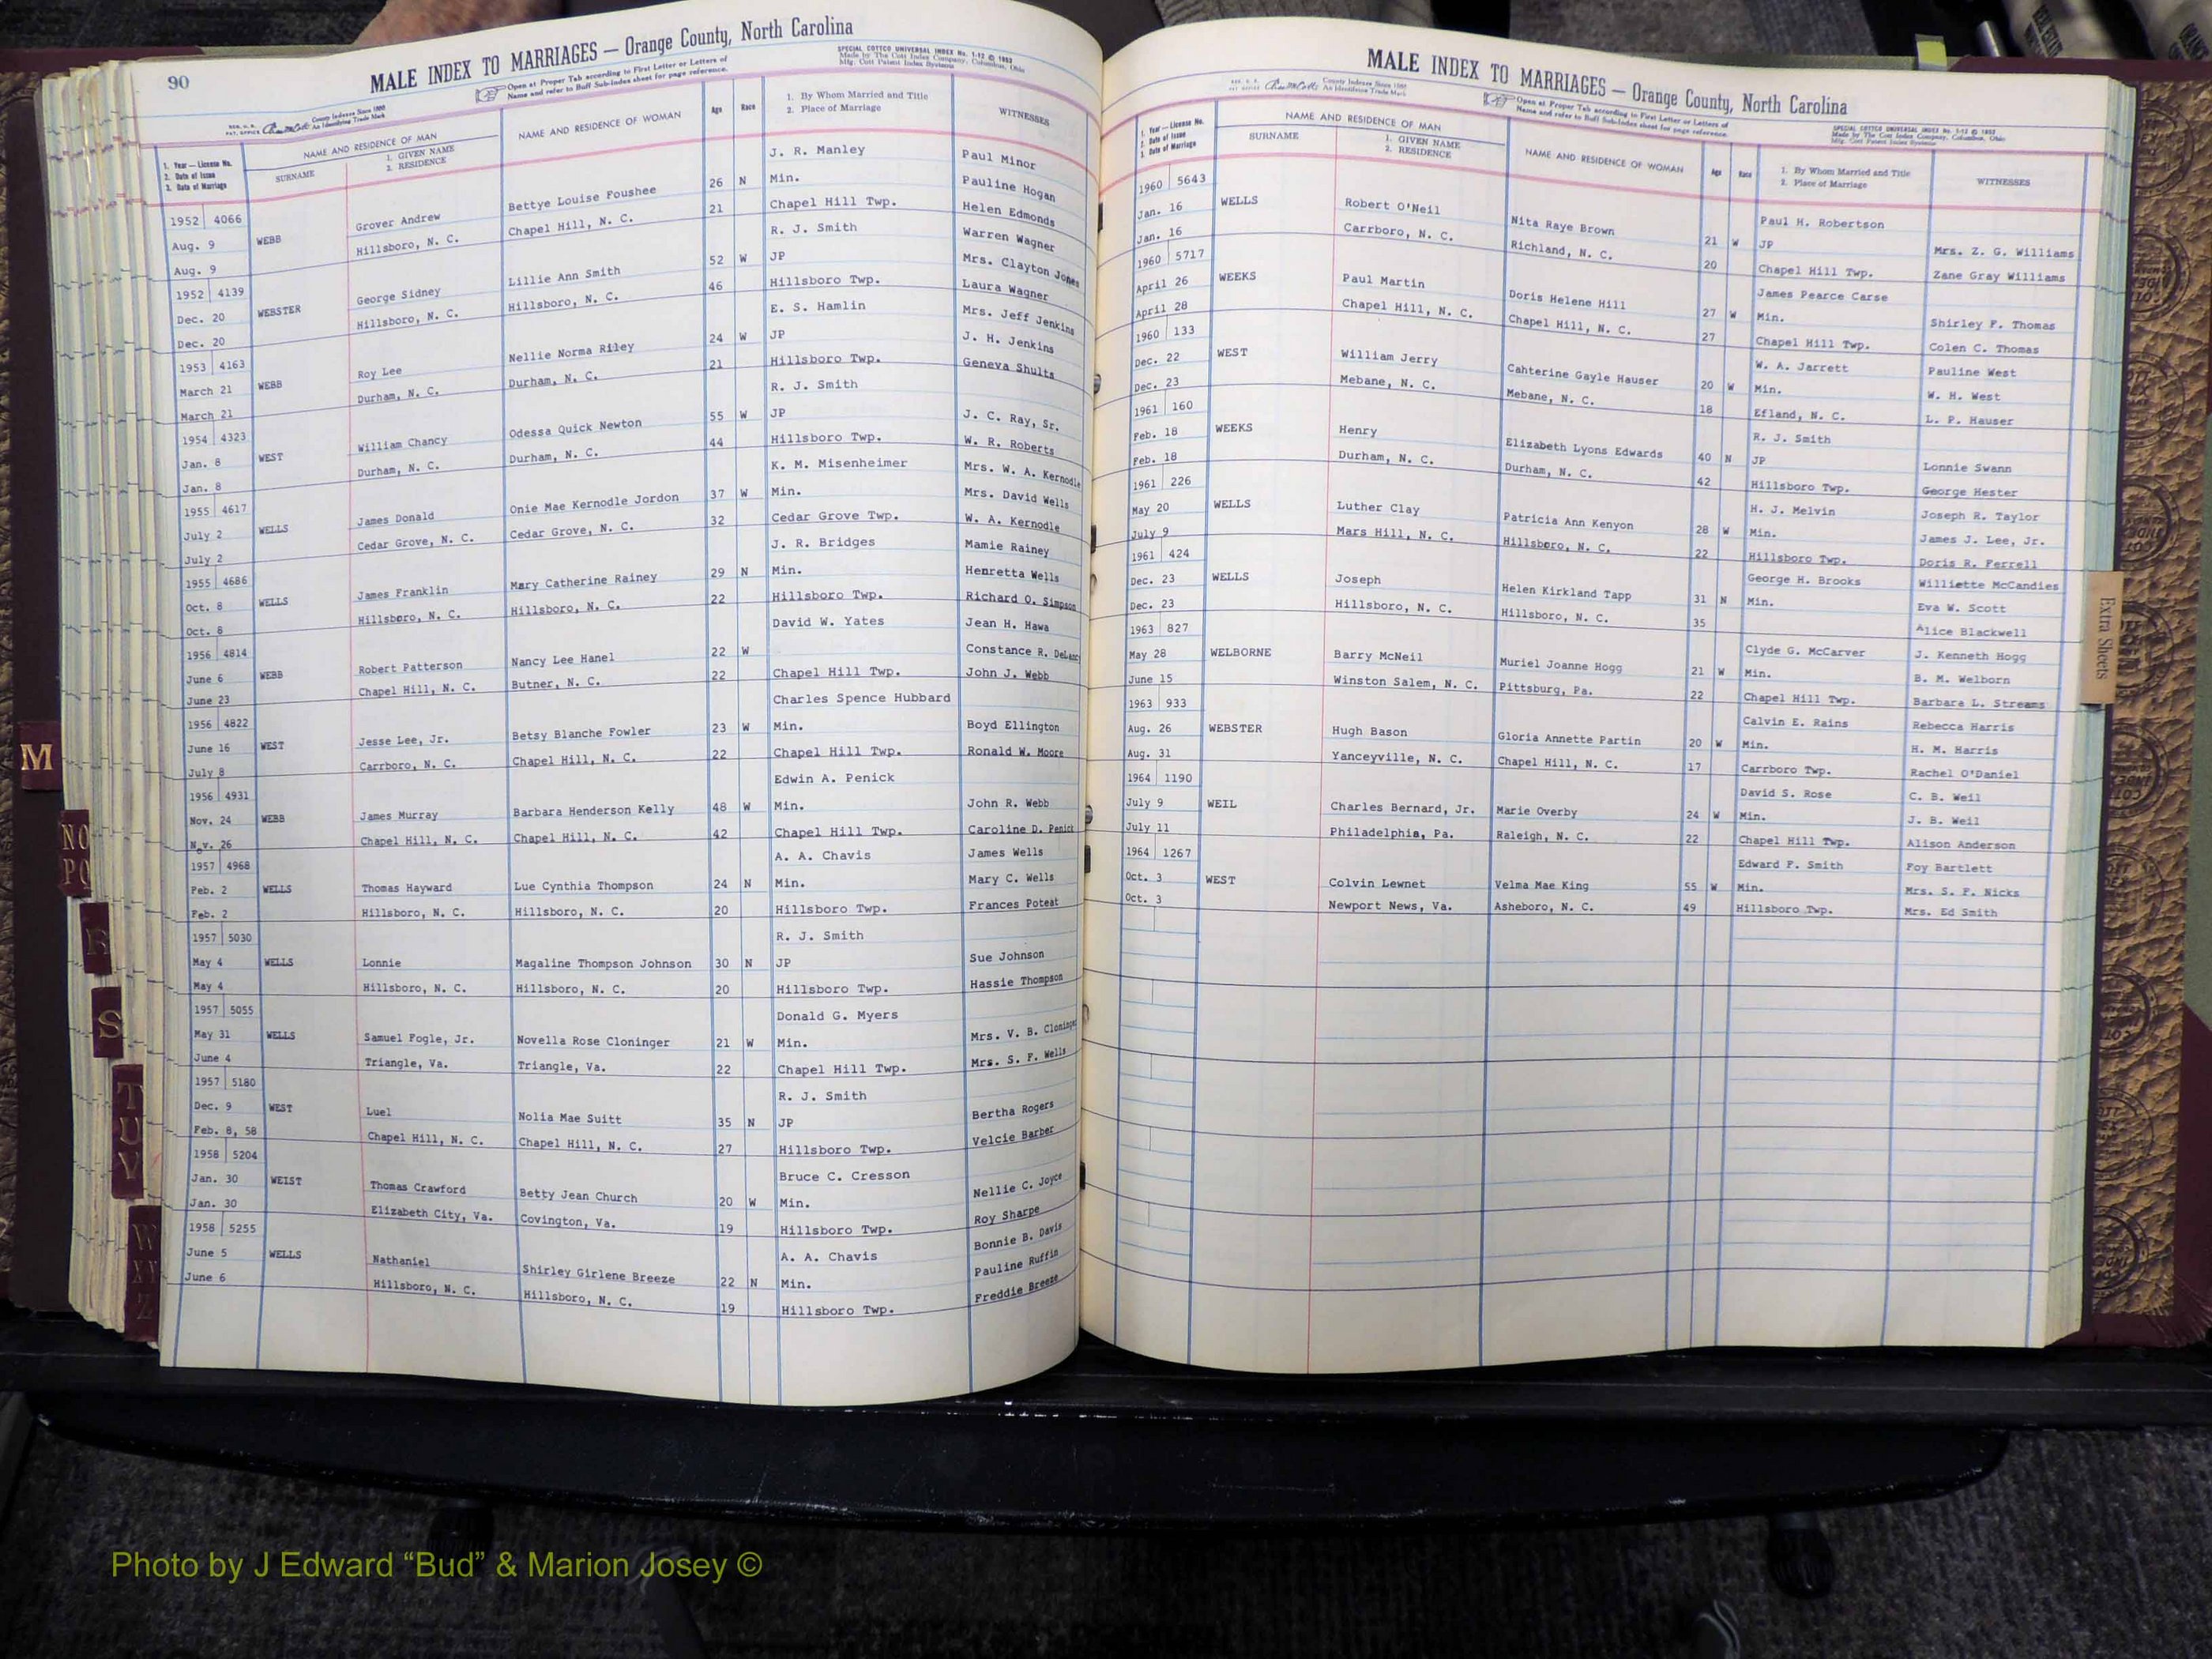 90
MALE INDEX TO MARRIAGES — Orange County, North Carolina
SPECIAL COTTCO UNIVERSAL INDEX No. 1-12 © 1952
Made by The Cott Index Company, Columbus, Ohio
Mfg. Cott Patent Index Systems
Open at Proper Tab according to First Letter or Letters of
Name and refer to Buff Sub-Index sheet for page reference.
County Indexes Since 1888
An Identifying Trade Mark
1. Year — License No.
2. Date of Issue
3. Date of Marriage
NAME AND RESIDENCE OF MAN
SURNAME
1. GIVEN NAME
2. RESIDENCE
NAME AND RESIDENCE OF WOMAN
Age
Race
1. By Whom Married and Title
2. Place of Marriage
WITNESSES
J. R. Manley Paul Minor
1952 4066 Grover Andrew Bettye Louise Foushee 26 N Min. Pauline Hogan
Aug. 9 WEBB Hillsboro, N. C. Chapel Hill, N. C. 21 Chapel Hill Twp. Helen Edmonds
Aug. 9 R. J. Smith Warren Wagner
1952 4139 George Sidney Lillie Ann Smith 52 W JP Mrs. Clayton Jones
Dec. 20 WEBSTER Hillsboro, N. C. Hillsboro, N. C. 46 Hillsboro Twp. Laura Wagner
Dec. 20 E. S. Hamlin Mrs. Jeff Jenkins
1953 4163 Roy Lee Nellie Norma Riley 24 W JP J. H. Jenkins
March 21 WEBB Durham, N. C. Durham, N. C. 21 Hillsboro Twp. Geneva Shults
March 21 R. J. Smith
1954 4323 William Chancy Odessa Quick Newton 55 W JP J. C. Ray, Sr.
Jan. 8 WEST Durham, N. C. Durham, N. C. 44 Hillsboro Twp. W. R. Roberts
Jan. 8 K. M. Misenheimer Mrs. W. A. Kernodle
1955 4617 James Donald Onie Mae Kernodle Jordon 37 W Min. Mrs. David Wells
July 2 WELLS Cedar Grove, N. C. Cedar Grove, N. C. 32 Cedar Grove Twp. W. A. Kernodle
July 2 J. R. Bridges Mamie Rainey
1955 4686 James Franklin Mary Catherine Rainey 29 N Min. Henretta Wells
Oct. 8 WELLS Hillsboro, N. C. Hillsboro, N. C. 22 Hillsboro Twp. Richard O. Simpson
Oct. 8 David W. Yates Jean H. Hawa
1956 4814 Robert Patterson Nancy Lee Hanel 22 W Constance R. DeLanc
June 6 WEBB Chapel Hill, N. C. Butner, N. C. 22 Chapel Hill Twp. John J. Webb
June 23 Charles Spence Hubbard
1956 4822 Jesse Lee, Jr. Betsy Blanche Fowler 23 W Min. Boyd Ellington
June 16 WEST Carrboro, N. C. Chapel Hill, N. C. 22 Chapel Hill Twp. Ronald W. Moore
July 8 Edwin A. Penick
1956 4931 James Murray Barbara Henderson Kelly 48 W Min. John R. Webb
Nov. 24 WEBB Chapel Hill, N. C. Chapel Hill, N. C. 42 Chapel Hill Twp. Caroline D. Penick
Nov. 26 A. A. Chavis James Wells
1957 4968 Thomas Hayward Lue Cynthia Thompson 24 N Min. Mary C. Wells
Feb. 2 WELLS Hillsboro, N. C. Hillsboro, N. C. 20 Hillsboro Twp. Frances Poteat
Feb. 2 R. J. Smith
1957 5030 Lonnie Magaline Thompson Johnson 30 N JP Sue Johnson
May 4 WELLS Hillsboro, N. C. Hillsboro, N. C. 20 Hillsboro Twp. Hassie Thompson
May 4 Donald G. Myers
1957 5055 Samuel Fogle, Jr. Novella Rose Cloninger 21 W Min. Mrs. V. B. Cloninger
May 31 WELLS Triangle, Va. Triangle, Va. 22 Chapel Hill Twp. Mrs. S. F. Wells
June 4 R. J. Smith
1957 5180 Luel Nolia Mae Suitt 35 N JP Bertha Rogers
Dec. 9 WEST Chapel Hill, N. C. Chapel Hill, N. C. 27 Hillsboro Twp. Velcie Barber
Feb. 8, 58 Bruce C. Cresson
1958 5204 Thomas Crawford Betty Jean Church 20 W Min. Nellie C. Joyce
Jan. 30 WEIST Elizabeth City, Va. Covington, Va. 19 Hillsboro Twp. Roy Sharpe
Jan. 30 A. A. Chavis Bonnie B. Davis
1958 5255 Nathaniel Shirley Girlene Breeze 22 N Min. Pauline Ruffin
June 5 WELLS Hillsboro, N. C. Hillsboro, N. C. 19 Hillsboro Twp. Freddie Breeze
June 6
MALE INDEX TO MARRIAGES — Orange County, North Carolina
County Indexes Since 1888
An Identifying Trade Mark
Open at Proper Tab according to First Letter or Letters of
Name and refer to Buff Sub-Index sheet for page reference.
SPECIAL COTTCO UNIVERSAL INDEX No. 1-12 © 1952
Made by The Cott Index Company, Columbus, Ohio
Mfg. Cott Patent Index Systems
1. Year — License No.
2. Date of Issue
3. Date of Marriage
NAME AND RESIDENCE OF MAN
SURNAME
1. GIVEN NAME
2. RESIDENCE
NAME AND RESIDENCE OF WOMAN
Age
Race
1. By Whom Married and Title
2. Place of Marriage
WITNESSES
1960 5643 Paul H. Robertson
Jan. 16 WELLS Robert O'Neil Nita Raye Brown 21 W JP Mrs. Z. G. Williams
Jan. 16 Carrboro, N. C. Richland, N. C. 20 Chapel Hill Twp. Zane Gray Williams
1960 5717 James Pearce Carse
April 26 WEEKS Paul Martin Doris Helene Hill 27 W Min. Shirley F. Thomas
April 28 Chapel Hill, N. C. Chapel Hill, N. C. 27 Chapel Hill Twp. Colen C. Thomas
1960 133 W. A. Jarrett Pauline West
Dec. 22 WEST William Jerry Cahterine Gayle Hauser 20 W Min. W. H. West
Dec. 23 Mebane, N. C. Mebane, N. C. 18 Efland, N. C. L. P. Hauser
1961 160 R. J. Smith
Feb. 18 WEEKS Henry Elizabeth Lyons Edwards 40 N JP Lonnie Swann
Feb. 18 Durham, N. C. Durham, N. C. 42 Hillsboro Twp. George Hester
1961 226 H. J. Melvin Joseph R. Taylor
May 20 WELLS Luther Clay Patricia Ann Kenyon 28 W Min. James J. Lee, Jr.
July 9 Mars Hill, N. C. Hillsboro, N. C. 22 Hillsboro Twp. Doris R. Ferrell
1961 424 George H. Brooks Williette McCandies
Dec. 23 WELLS Joseph Helen Kirkland Tapp 31 N Min. Eva W. Scott
Dec. 23 Hillsboro, N. C. Hillsboro, N. C. 35 Alice Blackwell
1963 827 Clyde G. McCarver J. Kenneth Hogg
May 28 WELBORNE Barry McNeil Muriel Joanne Hogg 21 W Min. B. M. Welborn
June 15 Winston Salem, N. C. Pittsburg, Pa. 22 Chapel Hill Twp. Barbara L. Streams
1963 933 Calvin E. Rains Rebecca Harris
Aug. 26 WEBSTER Hugh Bason Gloria Annette Partin 20 W Min. H. M. Harris
Aug. 31 Yanceyville, N. C. Chapel Hill, N. C. 17 Carrboro Twp. Rachel O'Daniel
1964 1190 David S. Rose C. B. Weil
July 9 WEIL Charles Bernard, Jr. Marie Overby 24 W Min. J. B. Weil
July 11 Philadelphia, Pa. Raleigh, N. C. 22 Chapel Hill Twp. Alison Anderson
1964 1267 Edward F. Smith Foy Bartlett
Oct. 3 WEST Colvin Lewnet Velma Mae King 55 W Min. Mrs. S. F. Nicks
Oct. 3 Newport News, Va. Asheboro, N. C. 49 Hillsboro Twp. Mrs. Ed Smith
Extra Sheets
M
NO
PQ
R
S
T
U
V
W
XY
Z
Photo by J Edward “Bud” & Marion Josey ©